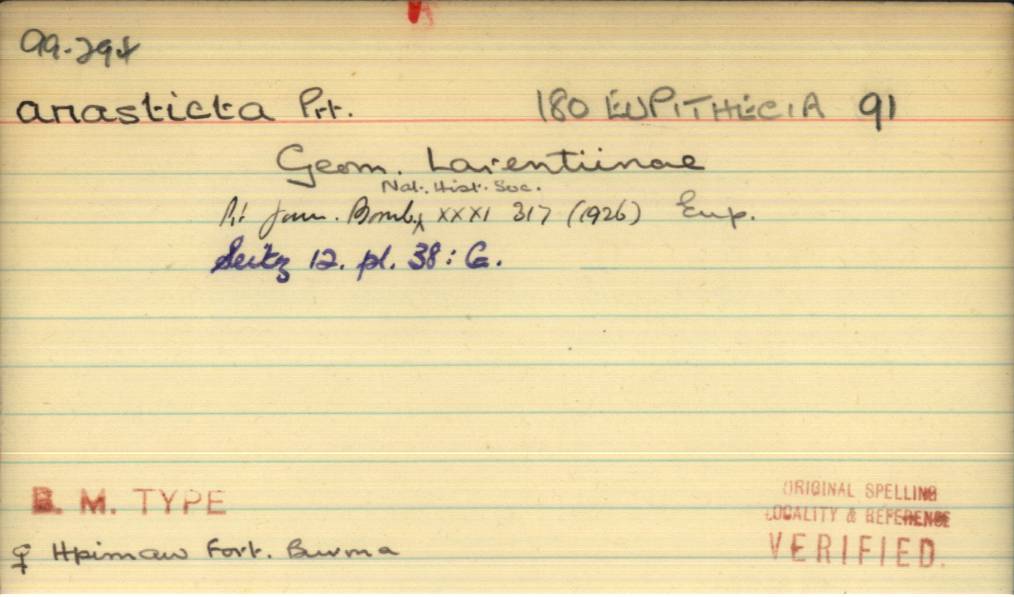 99.294
anasticta Prt. 180 EUPITHECIA 91
Geom. Larentiinae
Nat. Hist. Soc.
Prt Journ. Bomb. XXXI 317 (1926) Eup.
Seitz 12. pl. 38: G.
B. M. TYPE
♀ Hpimaw Fort. Burma
ORIGINAL SPELLING
LOCALITY & REFERENCE
VERIFIED.